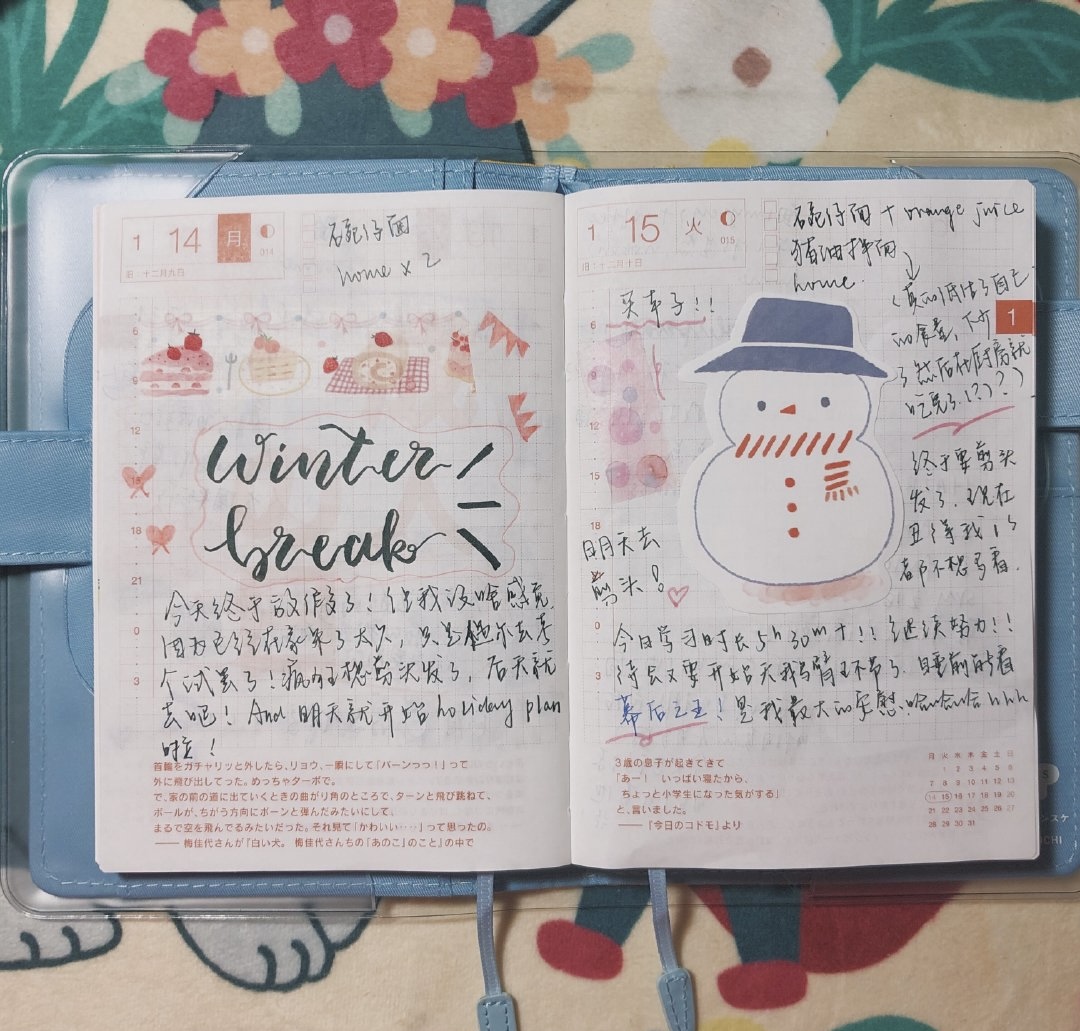 1 14 月
014
旧：十二月九日
碗仔面
home × 2
6
9
12
15
18
21
0
3
winter
break
今天终于放假了！但我没啥感觉
因为已经在家呆了太久，只是
个试罢了！疯狂想剪头发了，后天就
去吧！And 明天就开始 holiday plan
啦！
首輪をガチャリッと外したら、リョウ、一瞬にして「バーンっっ！」って
外に飛び出してった。めっちゃターボで。
で、家の前の道に出ていくときの曲がり角のところで、ターンと飛び跳ねて、
ボールが、ちがう方向にボーンと弾んだみたいにして、
まるで空を飛んでるみたいだった。それ見て「かわいい‥‥」って思ったの。
── 梅佳代さんが『白い犬。 梅佳代さんちの「あのこ」のこと』の中で
1 15 火
015
旧：十二月十日
碗仔面 + orange juice
猪油拌面
home.
(真的高估了自己
的食量，
了然后在厨房就
吃完了(?)?)
1
买本子!!
6
9
12
15
18
0
3
终于要剪头
发了.现在
丑得我
都不想
明天去
剪头！
今日学习时长5h30m+!!继续努力!!
待会又要开始
睡前能看
幕后之王！是我最大的安慰.哈哈哈hhh
3歳の息子が起きてきて
「あー！ いっぱい寝たから、
ちょっと小学生になった気がする」
と、言いました。
──『今日のコドモ』より
月 火 水 木 金 土 日
1 2 3 4 5 6
7 8 9 10 11 12 13
14 15 16 17 18 19 20
21 22 23 24 25 26 27
28 29 30 31